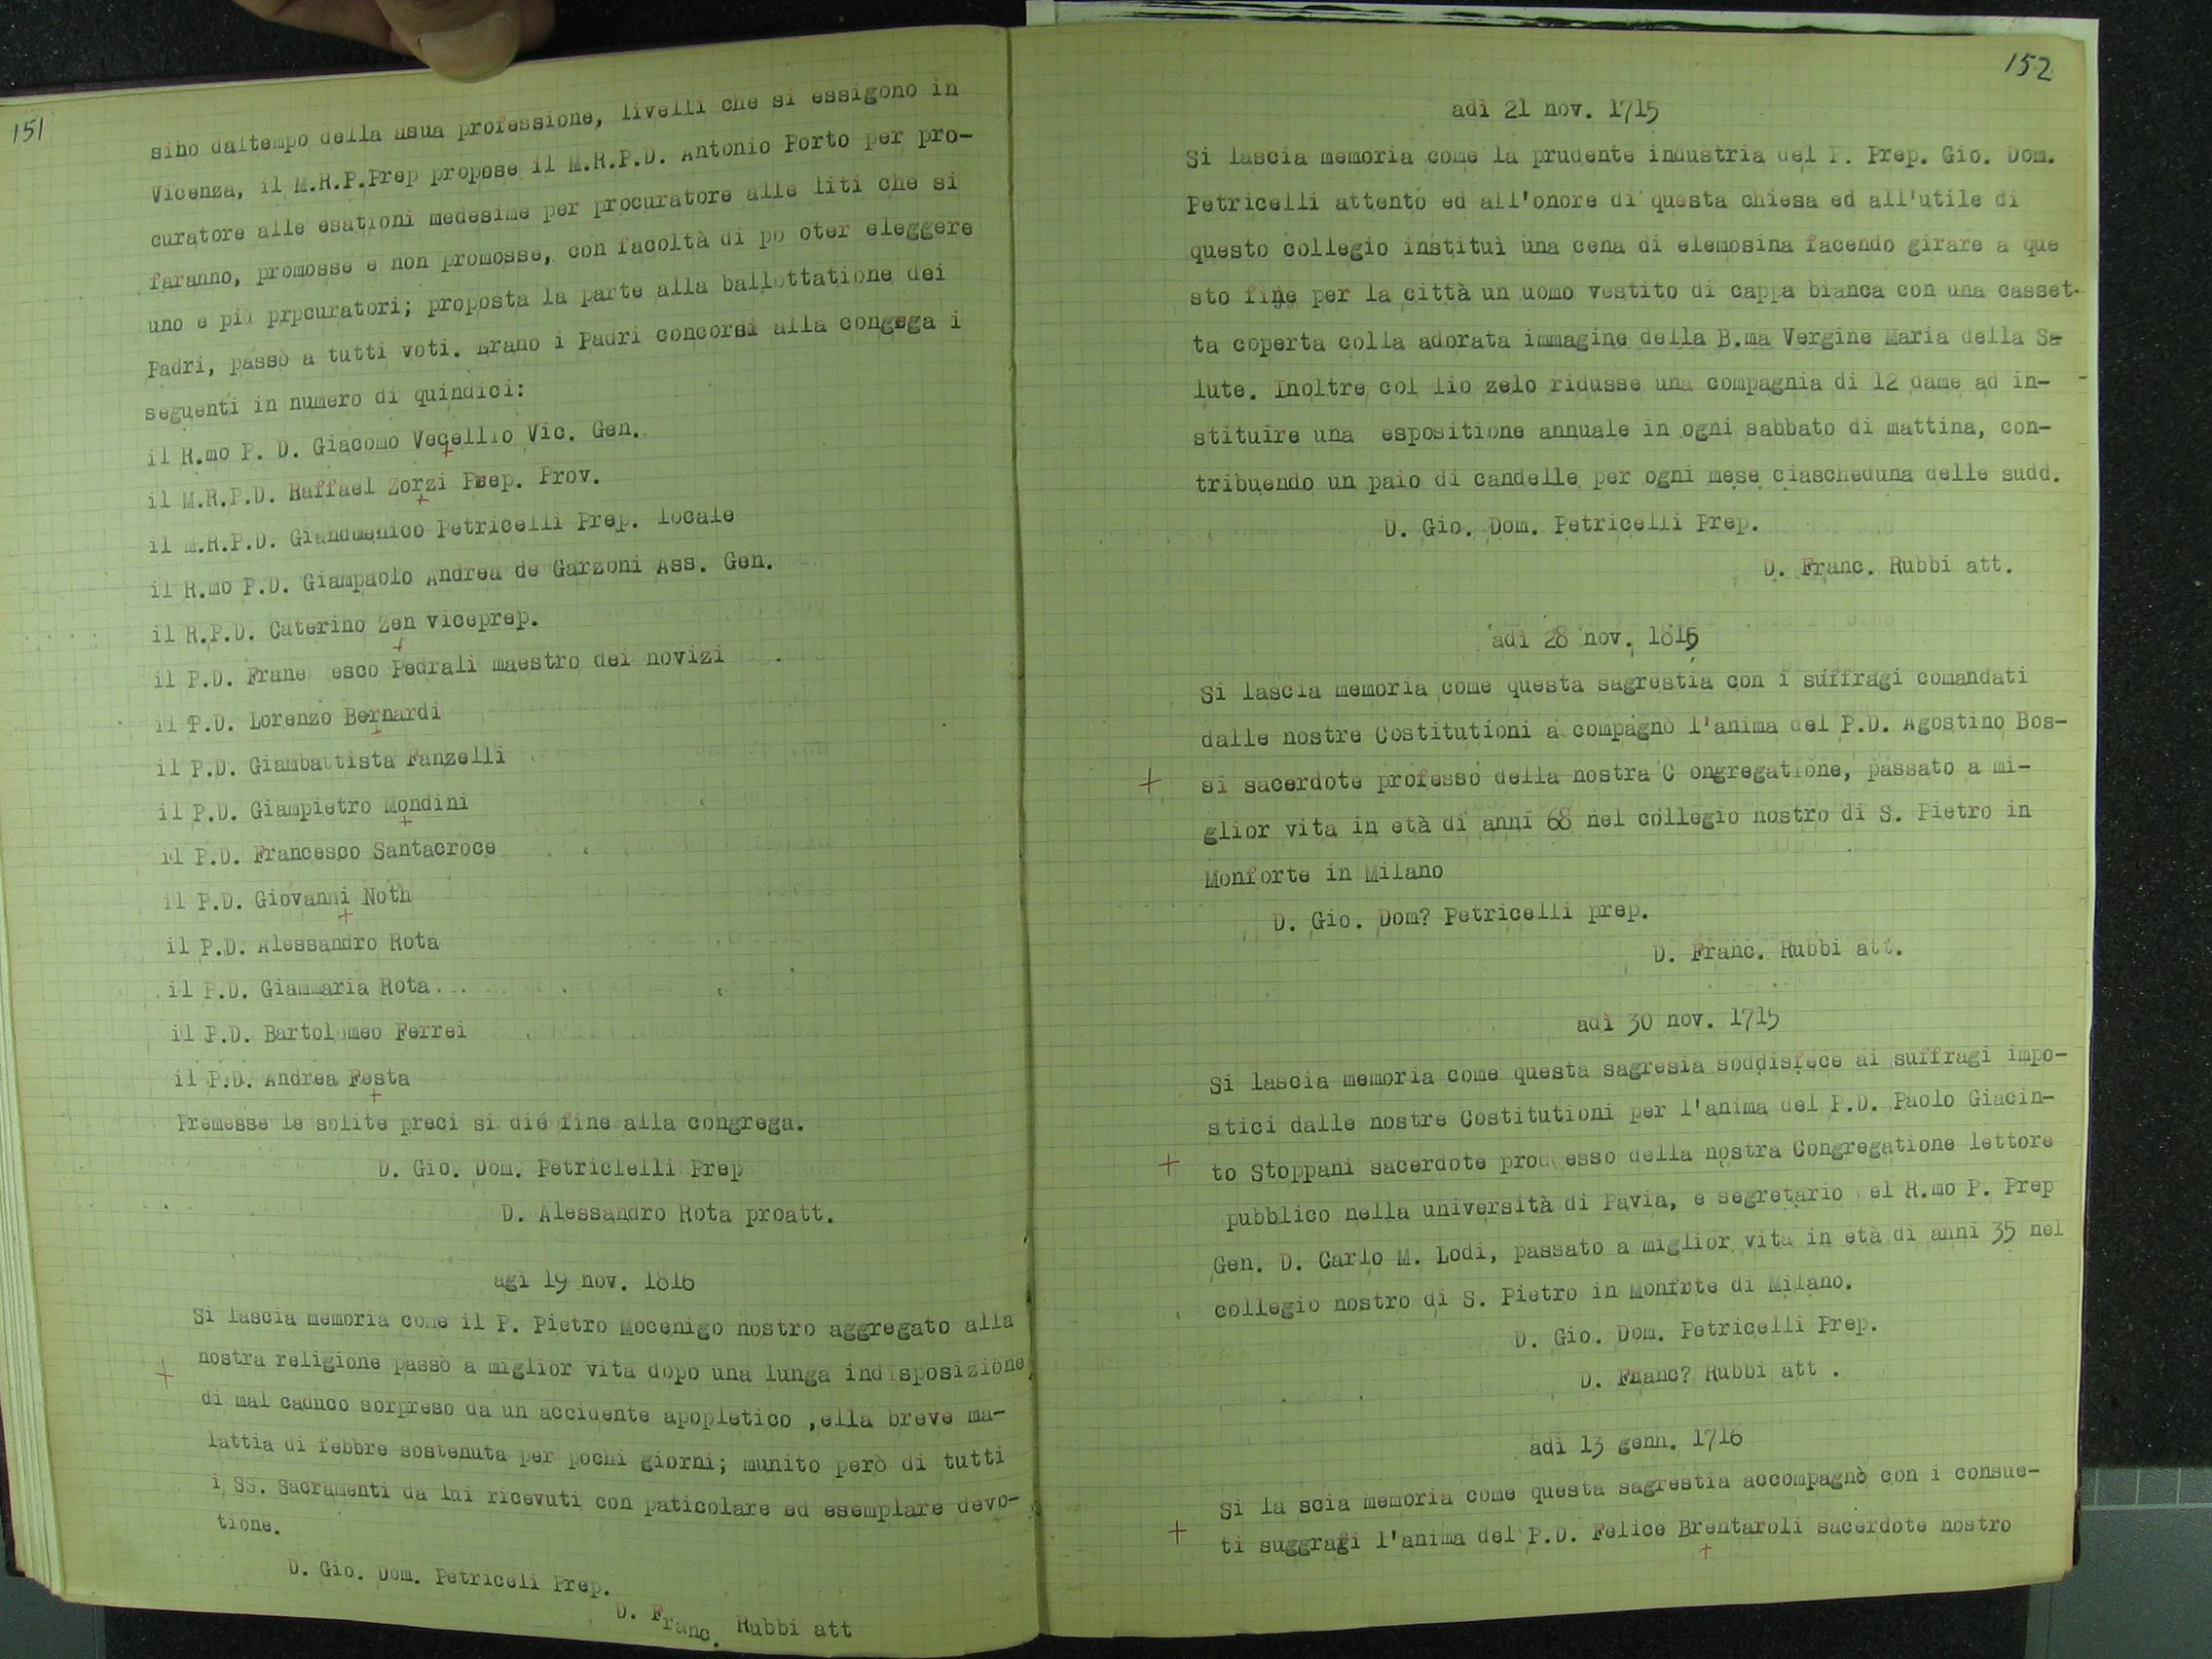 151
sino daltempo della asua professione, livelli che si essigono in
Vicenza, il M.R.P.Prep propose il M.R.P.D. Antonio Porto per pro-
curatore alle esationi medesime per procuratore alle liti che si
faranno, promosse e non promosse, con facoltà di po oter eleggere
uno e più prpcuratori; proposta la parte alla ballottatione dei
Padri, passò a tutti voti. Erano i Padri concorsi alla congrega i
seguenti in numero di quindici:
il R.mo P. D. Giacomo Vecellio Vic. Gen.
il M.R.P.D. Raffael Zorzi Prep. Prov.
il M.R.P.D. Giandmenico Petricelli Prep. locale
il R.mo P.D. Giampaolo Andrea de Garzoni Ass. Gen.
il R.P.D. Caterino Zen viceprep.
il P.D. Frane esco Pedrali maestro dei novizi
il P.D. Lorenzo Bernardi
il P.D. Giambattista Fanzelli
il P.D. Giampietro Mondini
il P.D. Francesco Santacroce
il P.D. Giovanni Noth
il P.D. Alessandro Rota
il P.D. Giammaria Rota...
il P.D. Bartolomeo Ferrei
il P.D. Andrea Festa
Premesse le solite preci si dié fine alla congrega.
D. Gio. Dom. Petriclelli Prep
D. Alessandro Rota proatt.
agì 19 nov. 1816
Si lascia memoria come il P. Pietro Mocenigo nostro aggregato alla
nostra religione passò a miglior vita dopo una lunga indisposizione
di mal caduco sorpreso da un accidente apopletico ,ella breve ma-
lattia di febbre sostenuta per pochi giorni; munito però di tutti
i SS. Sacramenti da lui ricevuti con paticolare ed esemplare devo-
tione.
D. Gio. Dom. Petriceli Prep.
D. Franc. Rubbi att
152
adì 21 nov. 1715
Si lascia memoria come la prudente industria del P. Prep. Gio. Dom.
Petricelli attento ed all'onore di questa chiesa ed all'utile di
questo collegio instituì una cena di elemosina facendo girare a que
sto fine per la città un uomo vestito di cappa bianca con una casset-
ta coperta colla adorata immagine della B.ma Vergine Maria della Sa
lute. Inoltre col lio zelo ridusse una compagnia di 12 dame ad in-
stituire una espositione annuale in ogni sabbato di mattina, con-
tribuendo un paio di candelle per ogni mese ciascheduna delle sudd.
D. Gio. Dom. Petricelli Prep.
D. Franc. Rubbi att.
adì 28 nov. 1815
Si lascia memoria come questa sagrestia con i suffragi comandati
dalle nostre Costitutioni a compagnò l'anima del P.D. Agostino Bos-
si sacerdote professo della nostra C ongregatione, passato a mi-
glior vita in età di anni 68 nel collegio nostro di S. Pietro in
Monforte in Milano
D. Gio. Dom? Petricelli prep.
D. Franc. Rubbi att.
adì 30 nov. 1715
Si lascia memoria come questa sagresia soddisfece ai suffragi impo-
stici dalle nostre Costitutioni per l'anima del P.D. Paolo Giacin-
to Stoppani sacerdote esso della nostra Congregatione lettore
pubblico nella università di Pavia, e segretario el R.mo P. Prep
Gen. D. Carlo M. Lodi, passato a miglior vita in età di anni 35 nel
collegio nostro di S. Pietro in Monfrte di Milano.
D. Gio. Dom. Petricelli Prep.
D. Fnanc? Rubbi att .
adì 13 genn. 1716
Si la scia memoria come questa sagrestia accompagnò con i consue-
ti suggragi l'anima del P.D. Felice Brentaroli sacerdote nostro